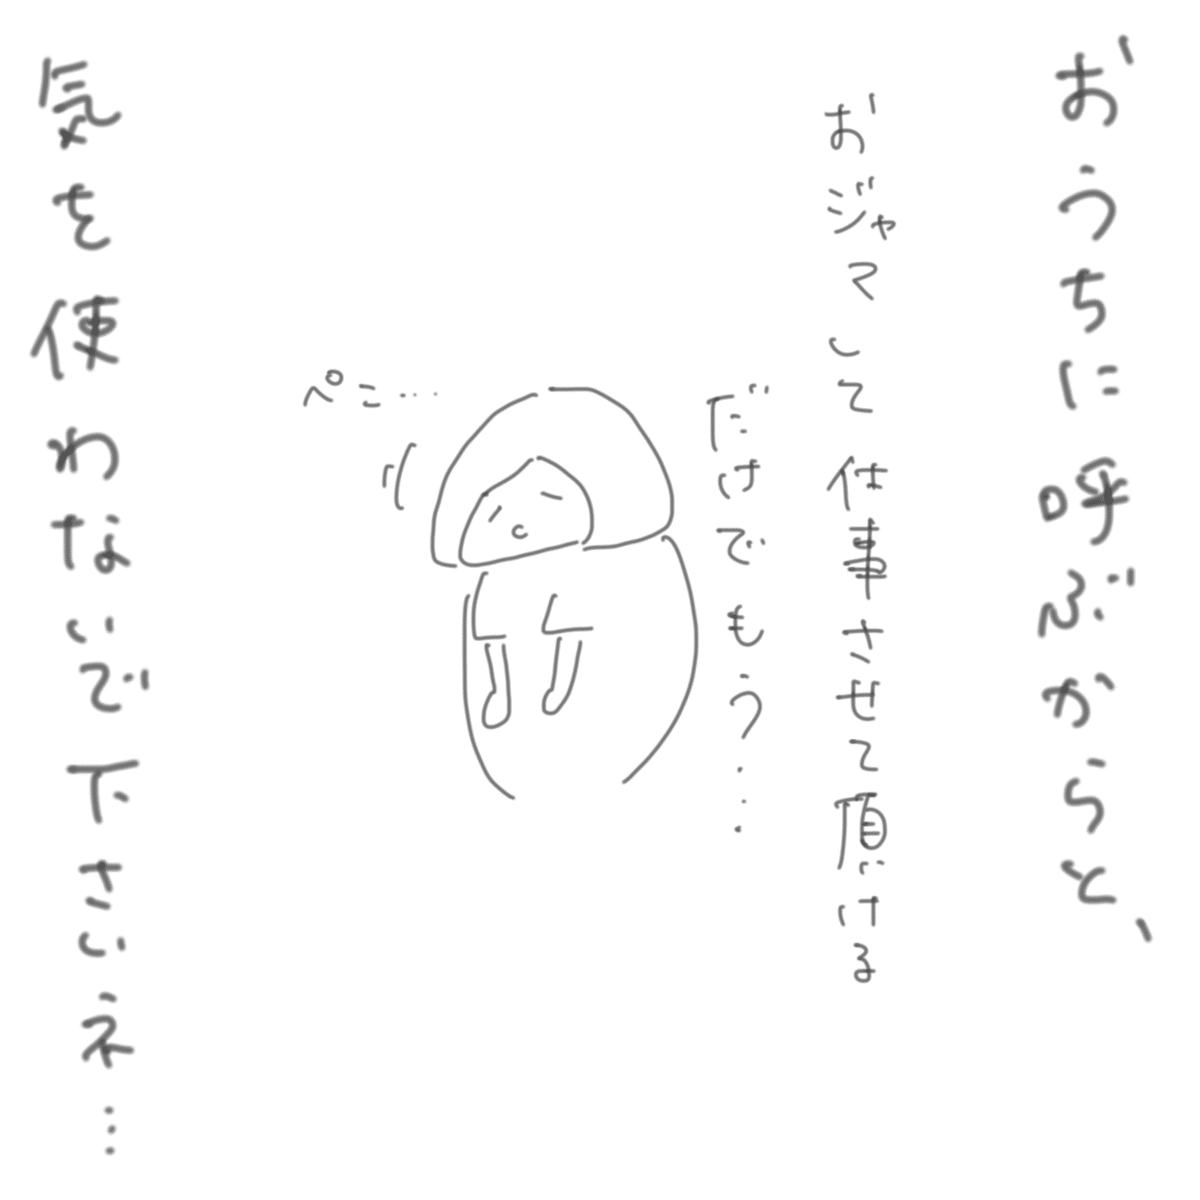 おうちに呼ぶからと、
おジャマして仕事させて頂ける
だけでもう...
ぺこ...
気を使わないで下さいネ...